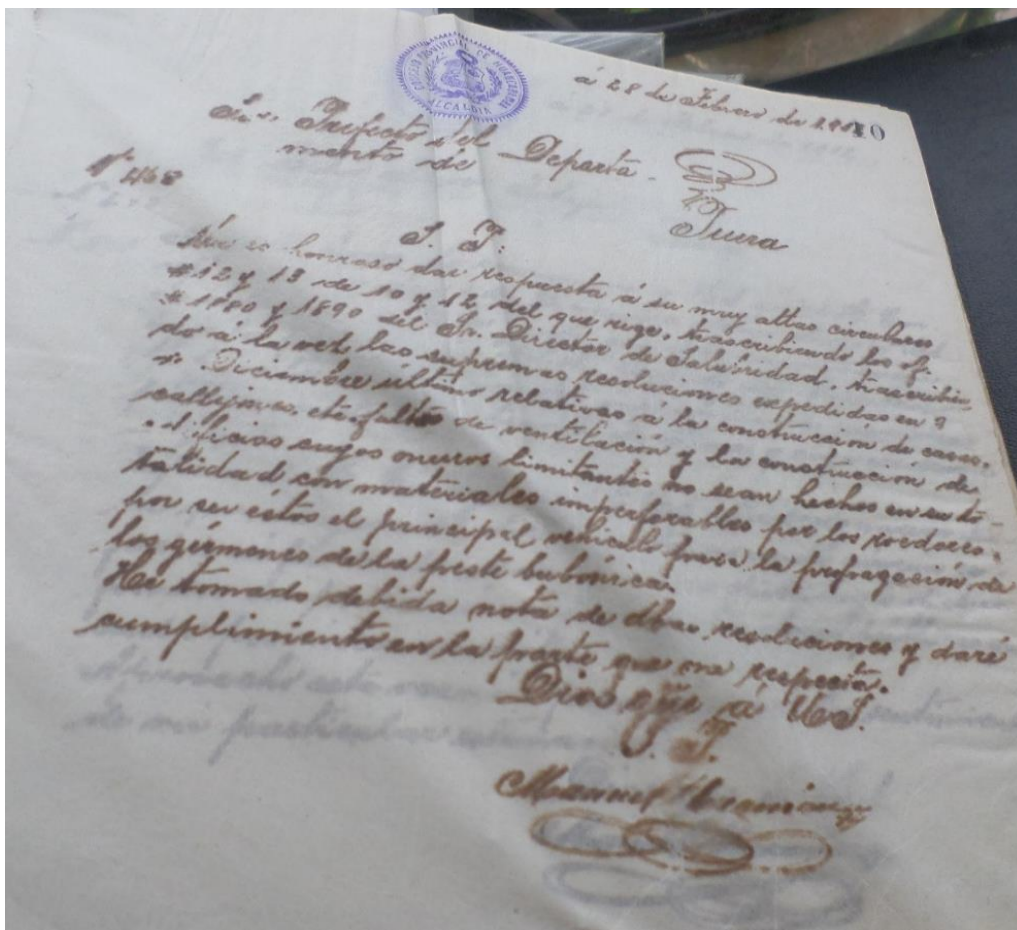 CONCEJO PROVINCIAL DE HUANCABAMBA
ALCALDIA
á 28 de Febrero de 1910
Sr. Prefecto del Departa-
mento de
Piura
Nº 468
S. P.
honroso dar respuesta á su muy attas circulares
#12 y 13 de 10 y 12 del que rige, trascribiendo los of
#1180 y 1890 del Sr. Director de Salubridad, trascribien-
do á la vez las supremas resoluciones expedidas en 9
Diciembre último relativas á la construcción de casas,
callejones, etc. faltos de ventilación y la construcción de
edificios cuyos muros limitantes no sean hechos en su to-
talidad con materiales imperforables por los roedores,
por ser éstos el principal vehículo para la propagación de
los gérmenes de la peste bubónica.
He tomado debida nota de dhas. resoluciones y daré
cumplimiento en la parte que me respecta.
Dios gue á US.
S. P.
Manuel